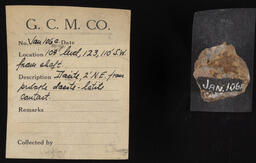 G. C. M. CO.
No. Jan 106a Date
Location 108' level, 123, 110' S.W.
from shaft.
Description Dacite, 2' N.E. from
probable dacite-latite
contact.
Remarks
Collected by
JAN. 106a